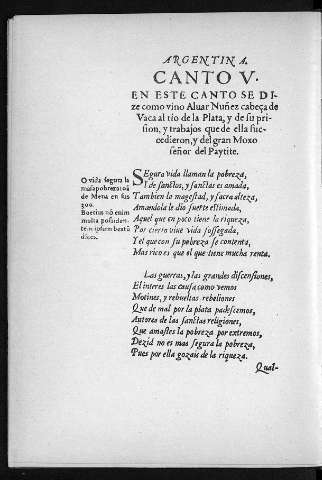 ARGENTINA.
CANTO V.
EN ESTE CANTO SE DI-
ze como vino Aluar Nuñez cabeça de
Vaca al rio de la Plata, y de su pri-
sion, y trabajos que de ella suc-
cedieron, y del gran Moxo
señor del Paytite.
O vida segura la
masa pobreza toq̄
de Mena en sus
300.
Boetius nō enim
multa possiden-
tem
dices.
SEgura vida llaman la pobreza,
I de sanctos, y sanctas es amada,
Tambien lo magestad, y sacra alteza,
Amandola le dio suerte estimada,
Aquel que en poco tiene la riqueza,
Por cierto viue vida sossegada,
Y el que con su pobreza se contenta,
Mas rico es que el que tiene mucha renta.
Las guerras, y las grandes discensiones,
El interes las causa como vemos
Motines, y rebueltas rebeliones
Que de mal por la plata padescemos,
Autores de las sanctas religiones,
Que amastes la pobreza por extremos,
Dezid no es mas segura la pobreza,
Pues por ella gozais de la riqueza.
Qual-